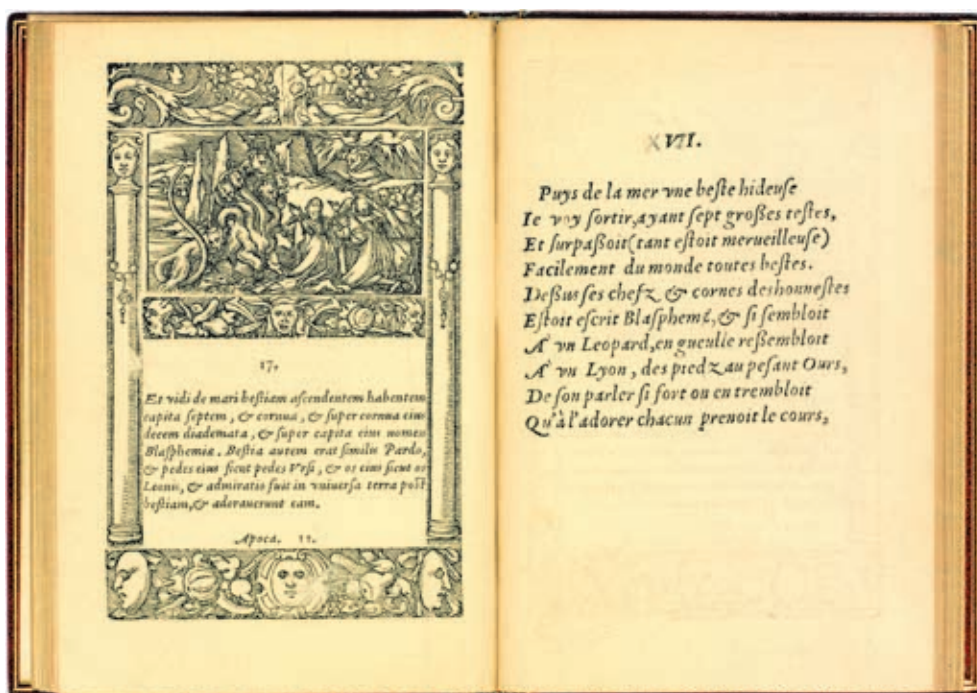 17.
Et vidi de mari bestiam ascendentem habentem
capita septem, & cornua, & super cornua eius
decem diademata, & super capita eius nomen
Blasphemiæ. Bestia autem erat similis Pardo,
& pedes eius sicut pedes Vrsi, & os eius sicut os
Leonis, & admiratio fuit in vniuersa terra post
bestiam, & adorauerunt eam.
Apoca. 11.
XVII.
Puys de la mer vne beste hideuse
Ie voy sortir, ayant sept großes testes,
Et surpaßoit (tant estoit merueilleuse)
Facilement du monde toutes bestes.
Deßus ses chefz & cornes deshonnestes
Estoit escrit Blasphemé, & si sembloit
A' vn Leopard, en gueulle reßembloit
A' vn Lyon, des piedz au pesant Ours,
De son parler si fort ou en trembloit
Qu'à l'adorer chacun prenoit le cours,